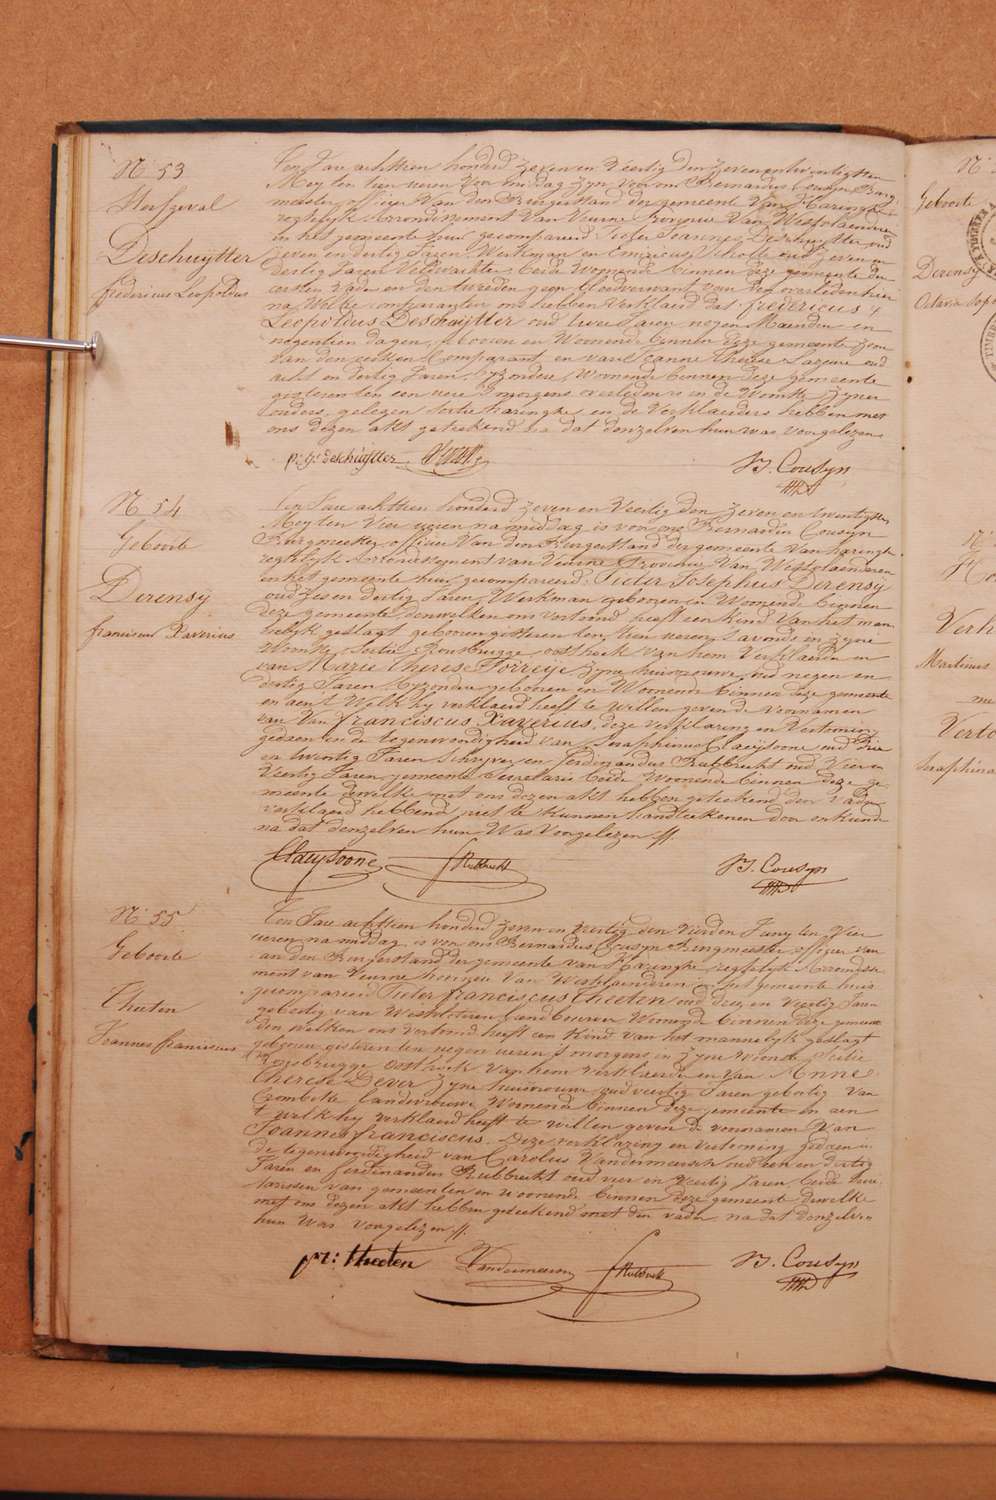 N. 53
Sterfgeval
Deschuytter
fredericus Leopoldus
Ten Jare achttien honderd zeven en veertig den zeven en twintigsten
Mey ten tien uren voor middag zyn voor ons Bernardus Cousyn Burge
meester, officier van den Burgerstand der gemeente van Haringhe
reghtelyk Arrondissement van Veurne Provincie van Westvlaenderen
in het gemeente huis gecompareerd Pieter Joannes Deschuytter oud
zeven en dertig Jaren, Werkman en
dertig Jaren Veldwachter, beide Woonende binnen deze gemeente de
eersten vader en den tweeden geen bloedverwant van den overledenen
na Welke comparanten ons hebben verklaerd dat fredericus
Leopoldus Deschuytter oud twee Jaren negen Maenden en
negentien dagen, geboren en Woonende binnen deze gemeente zoon
van den eersten Comparant en van Joanne Therese oud
acht en dertig Jaren, byzondere, Woonende binnen deze gemeente
gisteren ten een ure 's morgens overleden is in de Wooning zyner
ouders, gelegen Sectie Haringhe, en de Verklaerders hebben met
ons dezen akt geteekend na dat denzelven hun was voorgelezen
p: j: Deschuytter
B. Cousyn
N. 54
Geboorte
Derensy
franciscus Xaverius
Ten Jare achttien honderd zeven en veertig den zeven en twintigsten
Mey ten Vier uren namiddag is voor ons Bernardus Cousyn
Burgmeester, officier van den Burgerstand der gemeente van haringhe
reghtelyk Arrondissement van Veurne Provincie van Westvlaenderen
in het gemeente huis gecompareerd: Pieter Josephus Derensy
oud zes en dertig Jaren, Werkman geboren en Woonende binnen
deze gemeente, denwelken ons vertoond heeft een kind van het man
nelyk geslagt geboren gisteren ten tien uren 's avonds in zyne
Wooning Sectie Rousbrugge oosthoek van hem Verklaerder en
van Marie Therese Torreye zyne huisvrouwe, oud negen en
dertig Jaren, byzondere geboren en Woonende binnen deze gemeente
en aen 't Welk hy verklaerd heeft te willen geven de voornamen
van franciscus Xaverius, deze verklaring en Vertooning
gedaen in de tegenwoordigheid van Seraphinus Claeysoone oud drie
en twintig Jaren Schryver en ferdinandus Rubbrecht oud Vier en
Veertig Jaren, gemeente Secretaris beide Woonende binnen deze ge
meente dewelke met ons dezen akt hebben geteekend den Vader
verklaerd hebbende niet te kunnen handteekenen door onkunde
na dat denzelven hun Was Voorgelezen //.
Claeysoone
f Rubbrecht
B. Cousyn
N. 55
Geboorte
Theeten
Joannes franciscus
Ten Jare achttien honderd zeven en veertig den vierden Juny ten Vier
uren namiddag, is voor ons Bernardus Cousyn Burgmeester officier van
den Burgerstand der gemeente van Haringhe reghtelyk Arrondisse
ment van Veurne Provincie van Westvlaenderen in het gemeente huis
gecompareerd Pieter franciscus Theeten oud drie en Veertig Jaren
geboortig van Westvleteren, landbouwer Woonende binnen deze gemeente
den welken ons vertoond heeft een kind van het mannelyk geslagt
geboren gisteren ten negen uren 's morgens in zyne Wooning Sectie
Rousbrugge oosthoek van hem Verklaerder en van Anne
Therese Dever zyne huisvrouwe oud veertig Jaren geboortig van
Crombeke landbouwerse Woonende binnen deze gemeente en aen
't welk hy verklaerd heeft te willen geven de voornamen van
Joannes franciscus. Deze verklaring en vertooning gedaen in
de tegenwoordigheid van Carolus Vandermeersch oud een en dertig
Jaren en ferdinandus Rubbrecht oud vier en Veertig Jaren, beide Secre
tarissen van gemeenten en woonende binnen deze gemeente dewelke
met ons dezen akt hebben geteekend met den vader na dat denzelven
hun Was voorgelezen //.
p:f: theeten
Vandermeersch
f Rubbrecht
B. Cousyn
Geboorte
Derensy
Verh
Martinus
Verlo
Seraphina